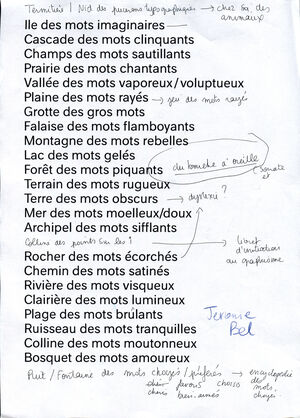 Termitière / Nid des poissons typographiques → chez les, des animaux
Ile des mots imaginaires
Cascade des mots clinquants
Champs des mots sautillants
Prairie des mots chantants
Vallée des mots vaporeux/voluptueux
Plaine des mots rayés → jeu des mots rayés
Grotte des gros mots
Falaise des mots flamboyants
Montagne des mots rebelles
Lac des mots gelés
du bouche à oreille
Forêt des mots piquants
Terrain des mots rugueux
Terre des mots obscurs → dyslexie ?
Mer des mots moelleux/doux
Archipel des mots sifflants
Colline des points sur les i → livret d'initiation au graphisme
Rocher des mots écorchés
Chemin des mots satinés
Rivière des mots visqueux
Clairière des mots lumineux
Plage des mots brûlants
Jerome Bel
Ruisseau des mots tranquilles
Colline des mots moutonneux
Bosquet des mots amoureux
Puit / Fontaine des mots choyés / préférés → encyclopédie des mots choyés
favoris choisis
bien-aimés